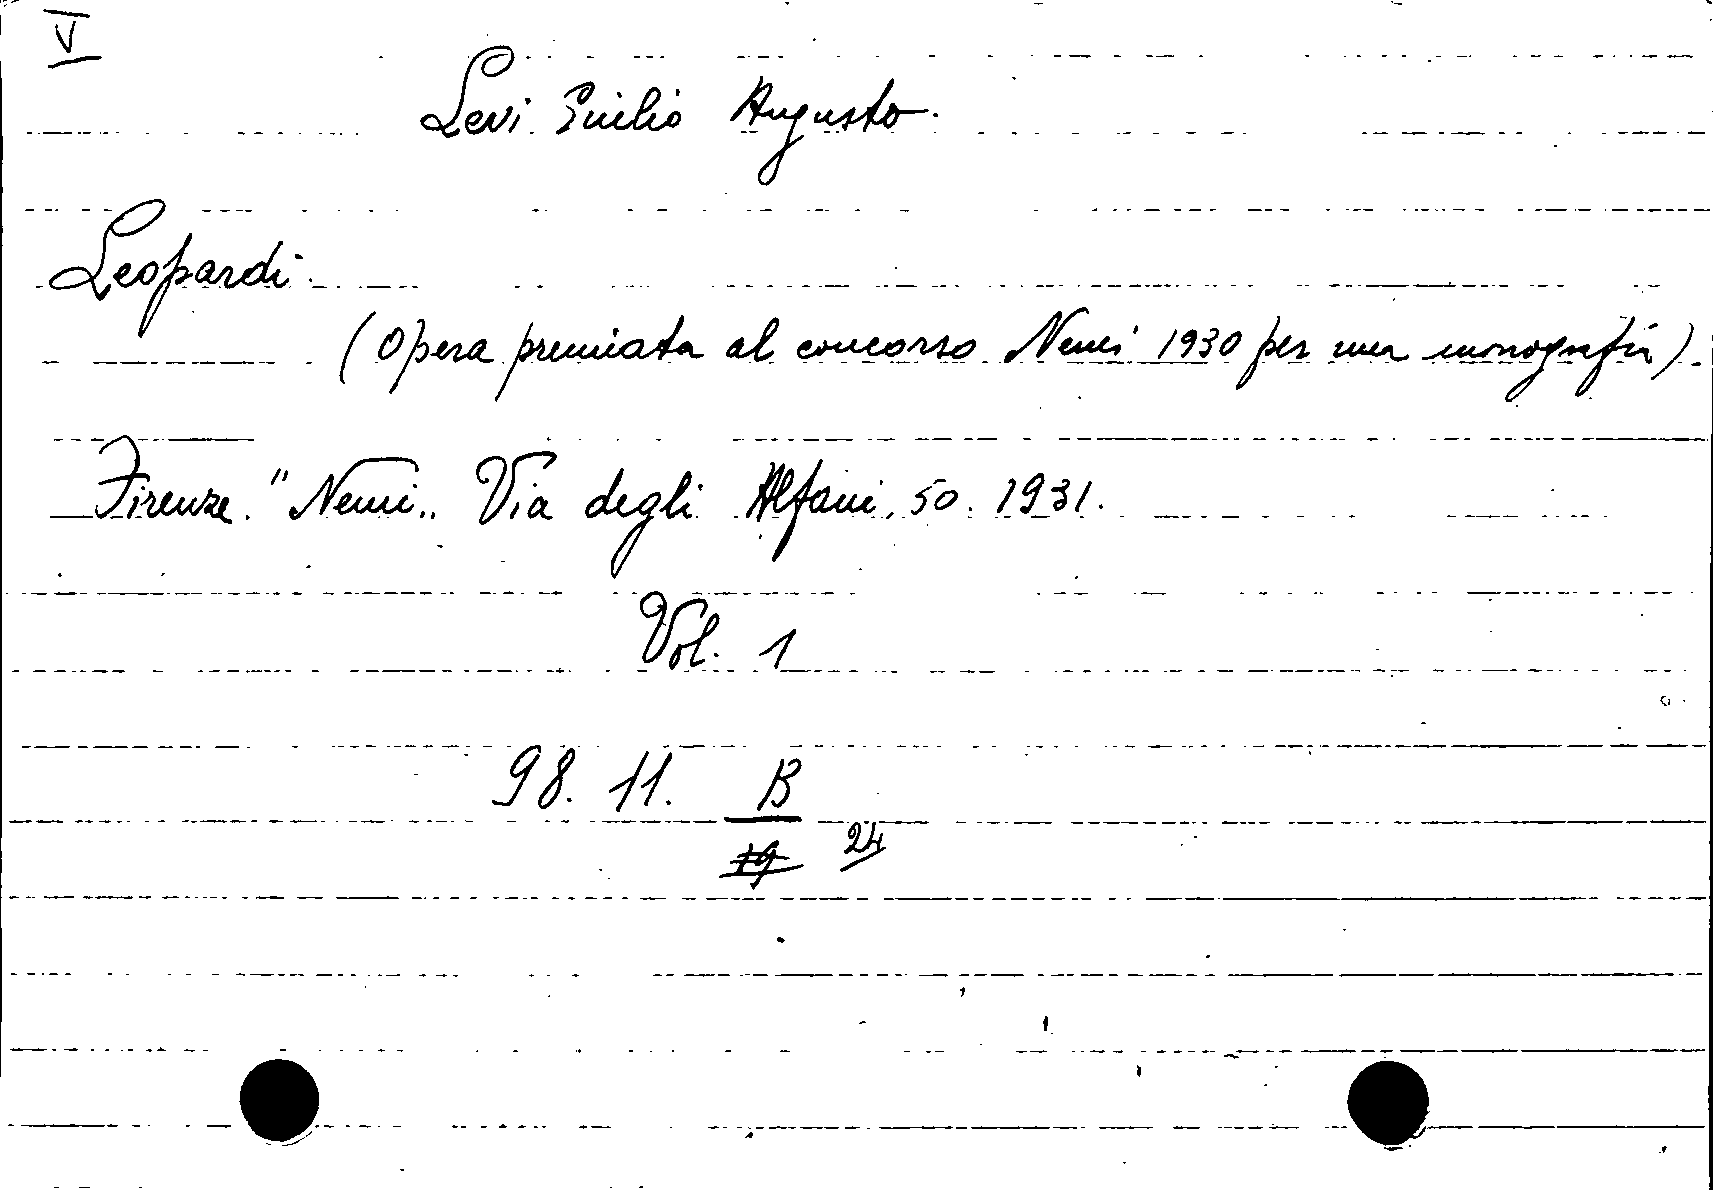 V
Levi Giulio Augusto.
Leopardi.
(Opera premiata al concorso Nemi 1930 per una monografia).
Firenze. "Nemi„ Via degli Alfani, 50. 1931.
Vol. 1
98. 11. B
19 24